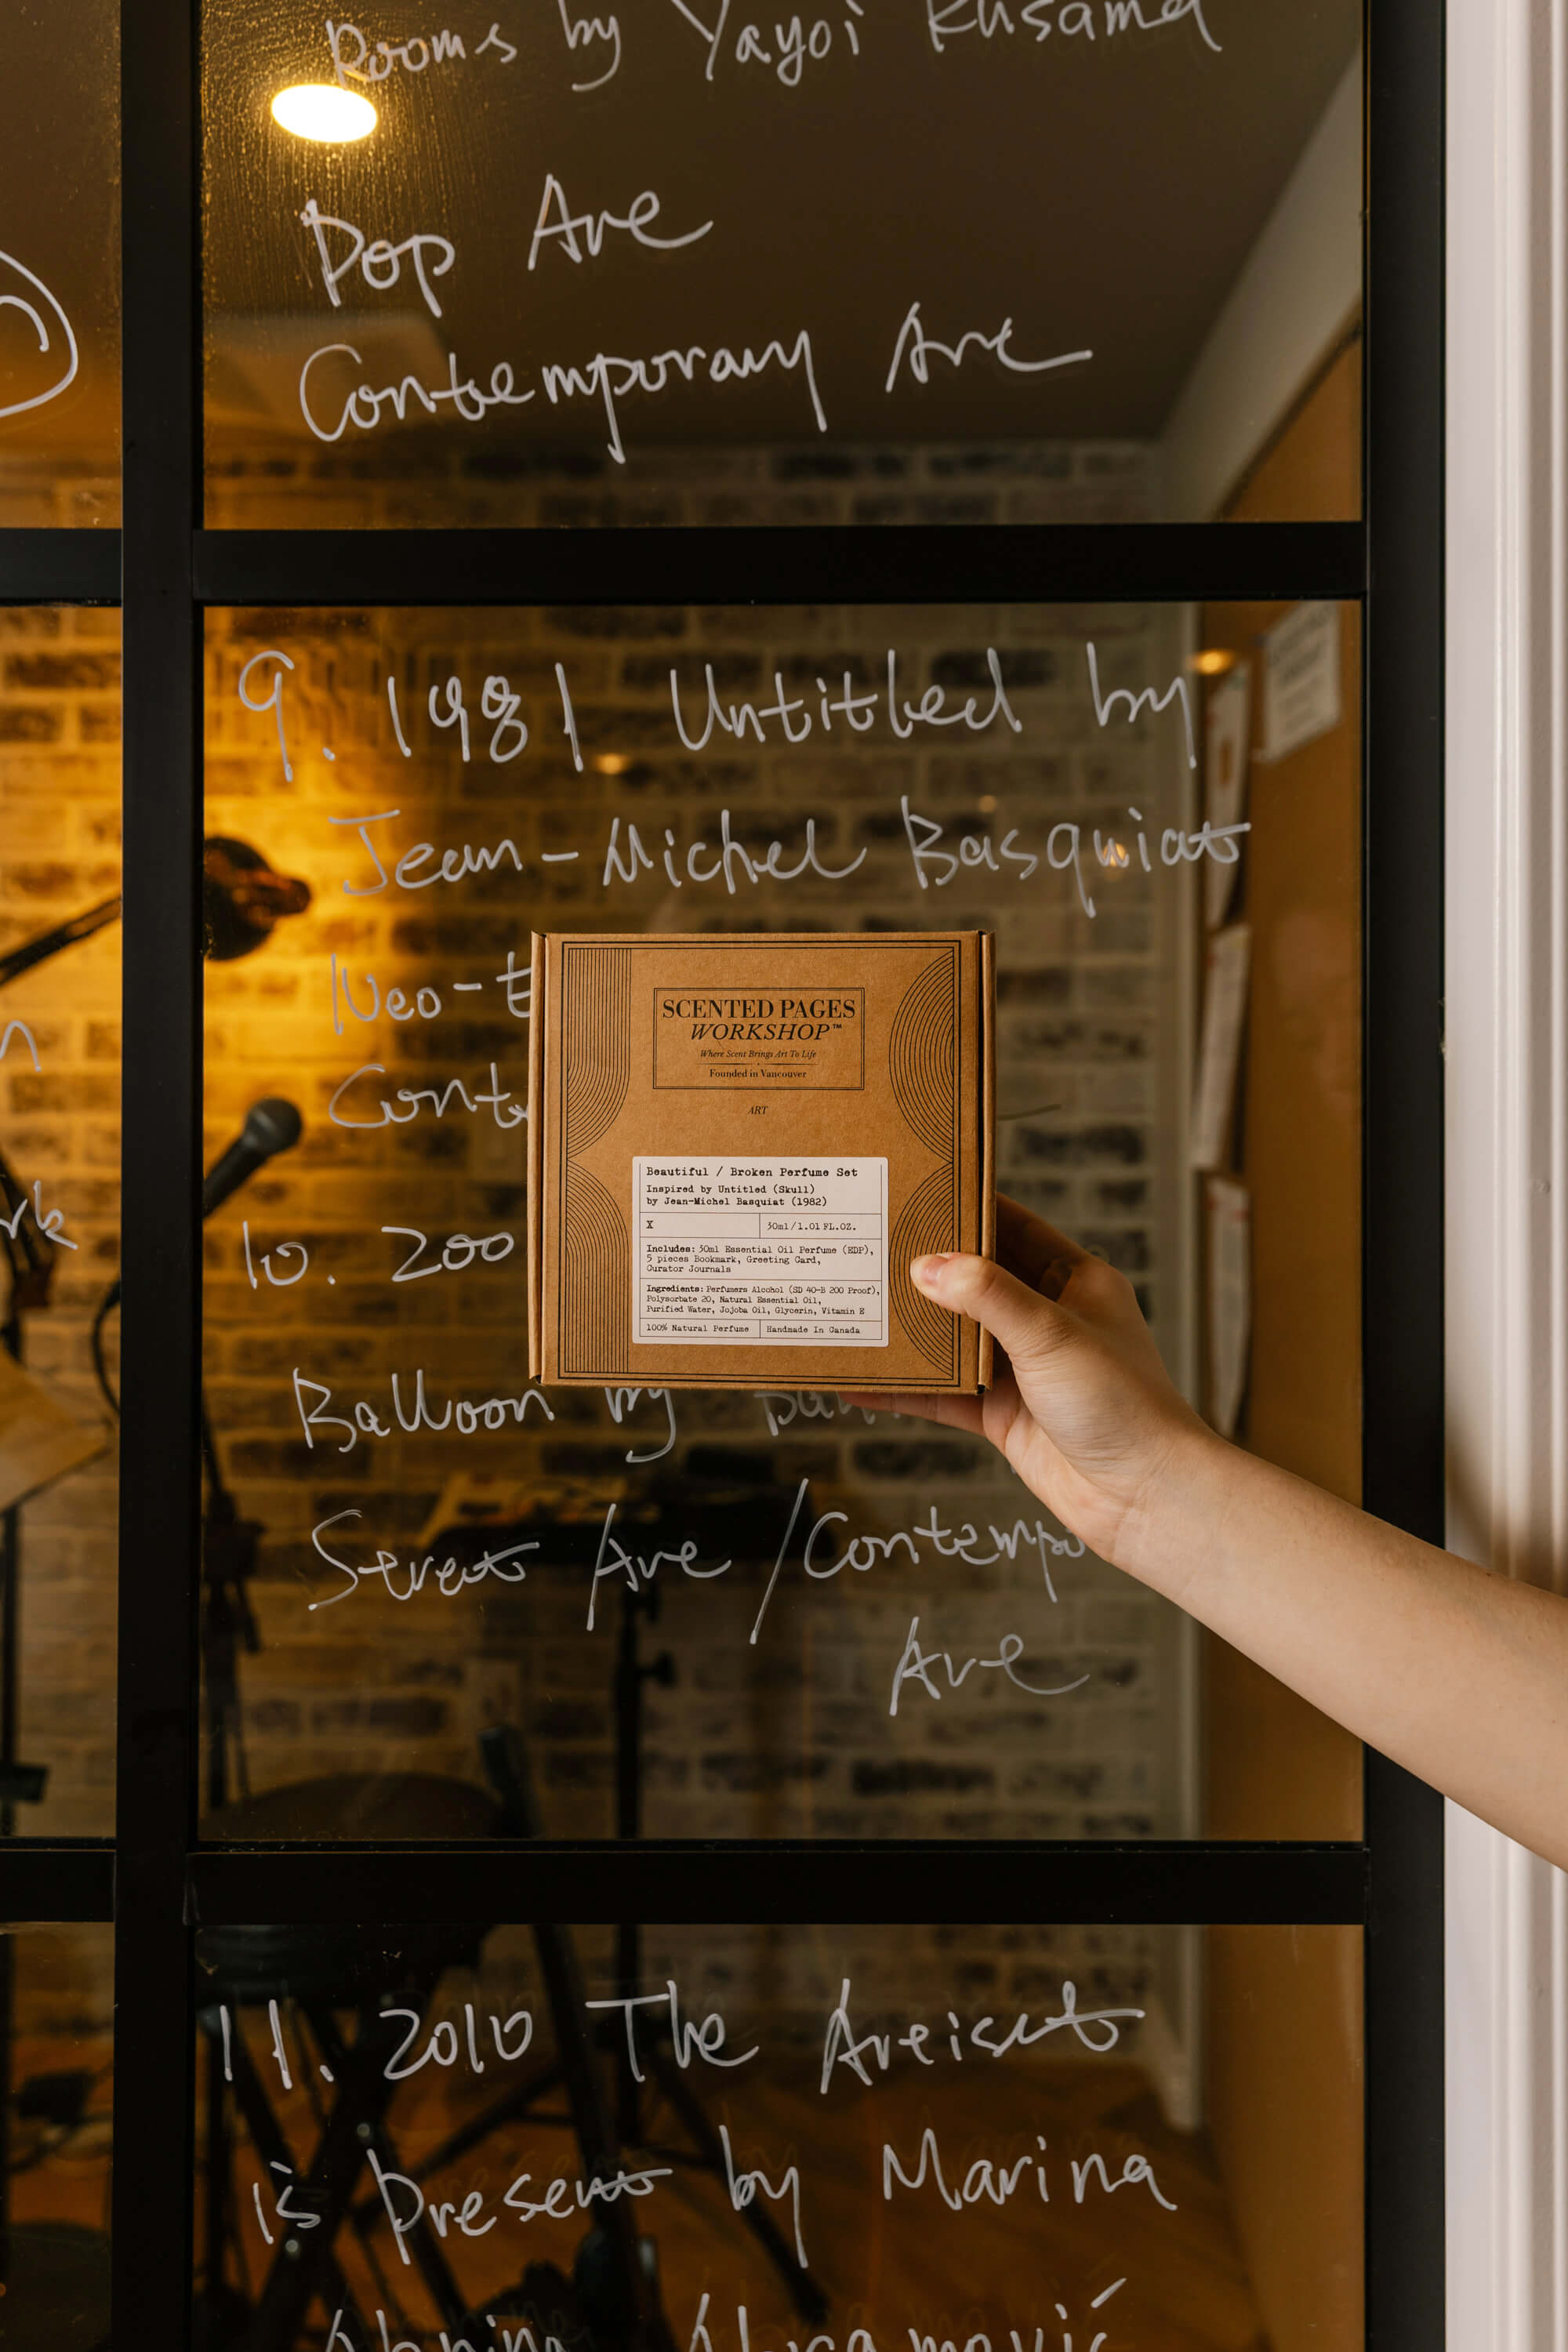 Rooms by Yayoi Kusama
Pop Art
Contemporary Art
9. 1981 Untitled by
Jean-Michel Basquiat
Neo-
Cont
SCENTED PAGES
WORKSHOP™
Where Scent Brings Art To Life
Founded in Vancouver
ART
Beautiful / Broken Perfume Set
Inspired by Untitled (Skull)
by Jean-Michel Basquiat (1982)
X 30ml/1.01 FL.OZ.
Includes: 30ml Essential Oil Perfume (EDP),
5 pieces Bookmark, Greeting Card,
Curator Journals
Ingredients: Perfumers Alcohol (SD 40-B 200 Proof),
Polysorbate 20, Natural Essential Oil,
Purified Water, Jojoba Oil, Glycerin, Vitamin E
100% Natural Perfume Handmade In Canada
10. 200
Balloon by Ban
Street Art / Contempo
Art
11. 2010 The Artist
is Present by Marina
Abramović